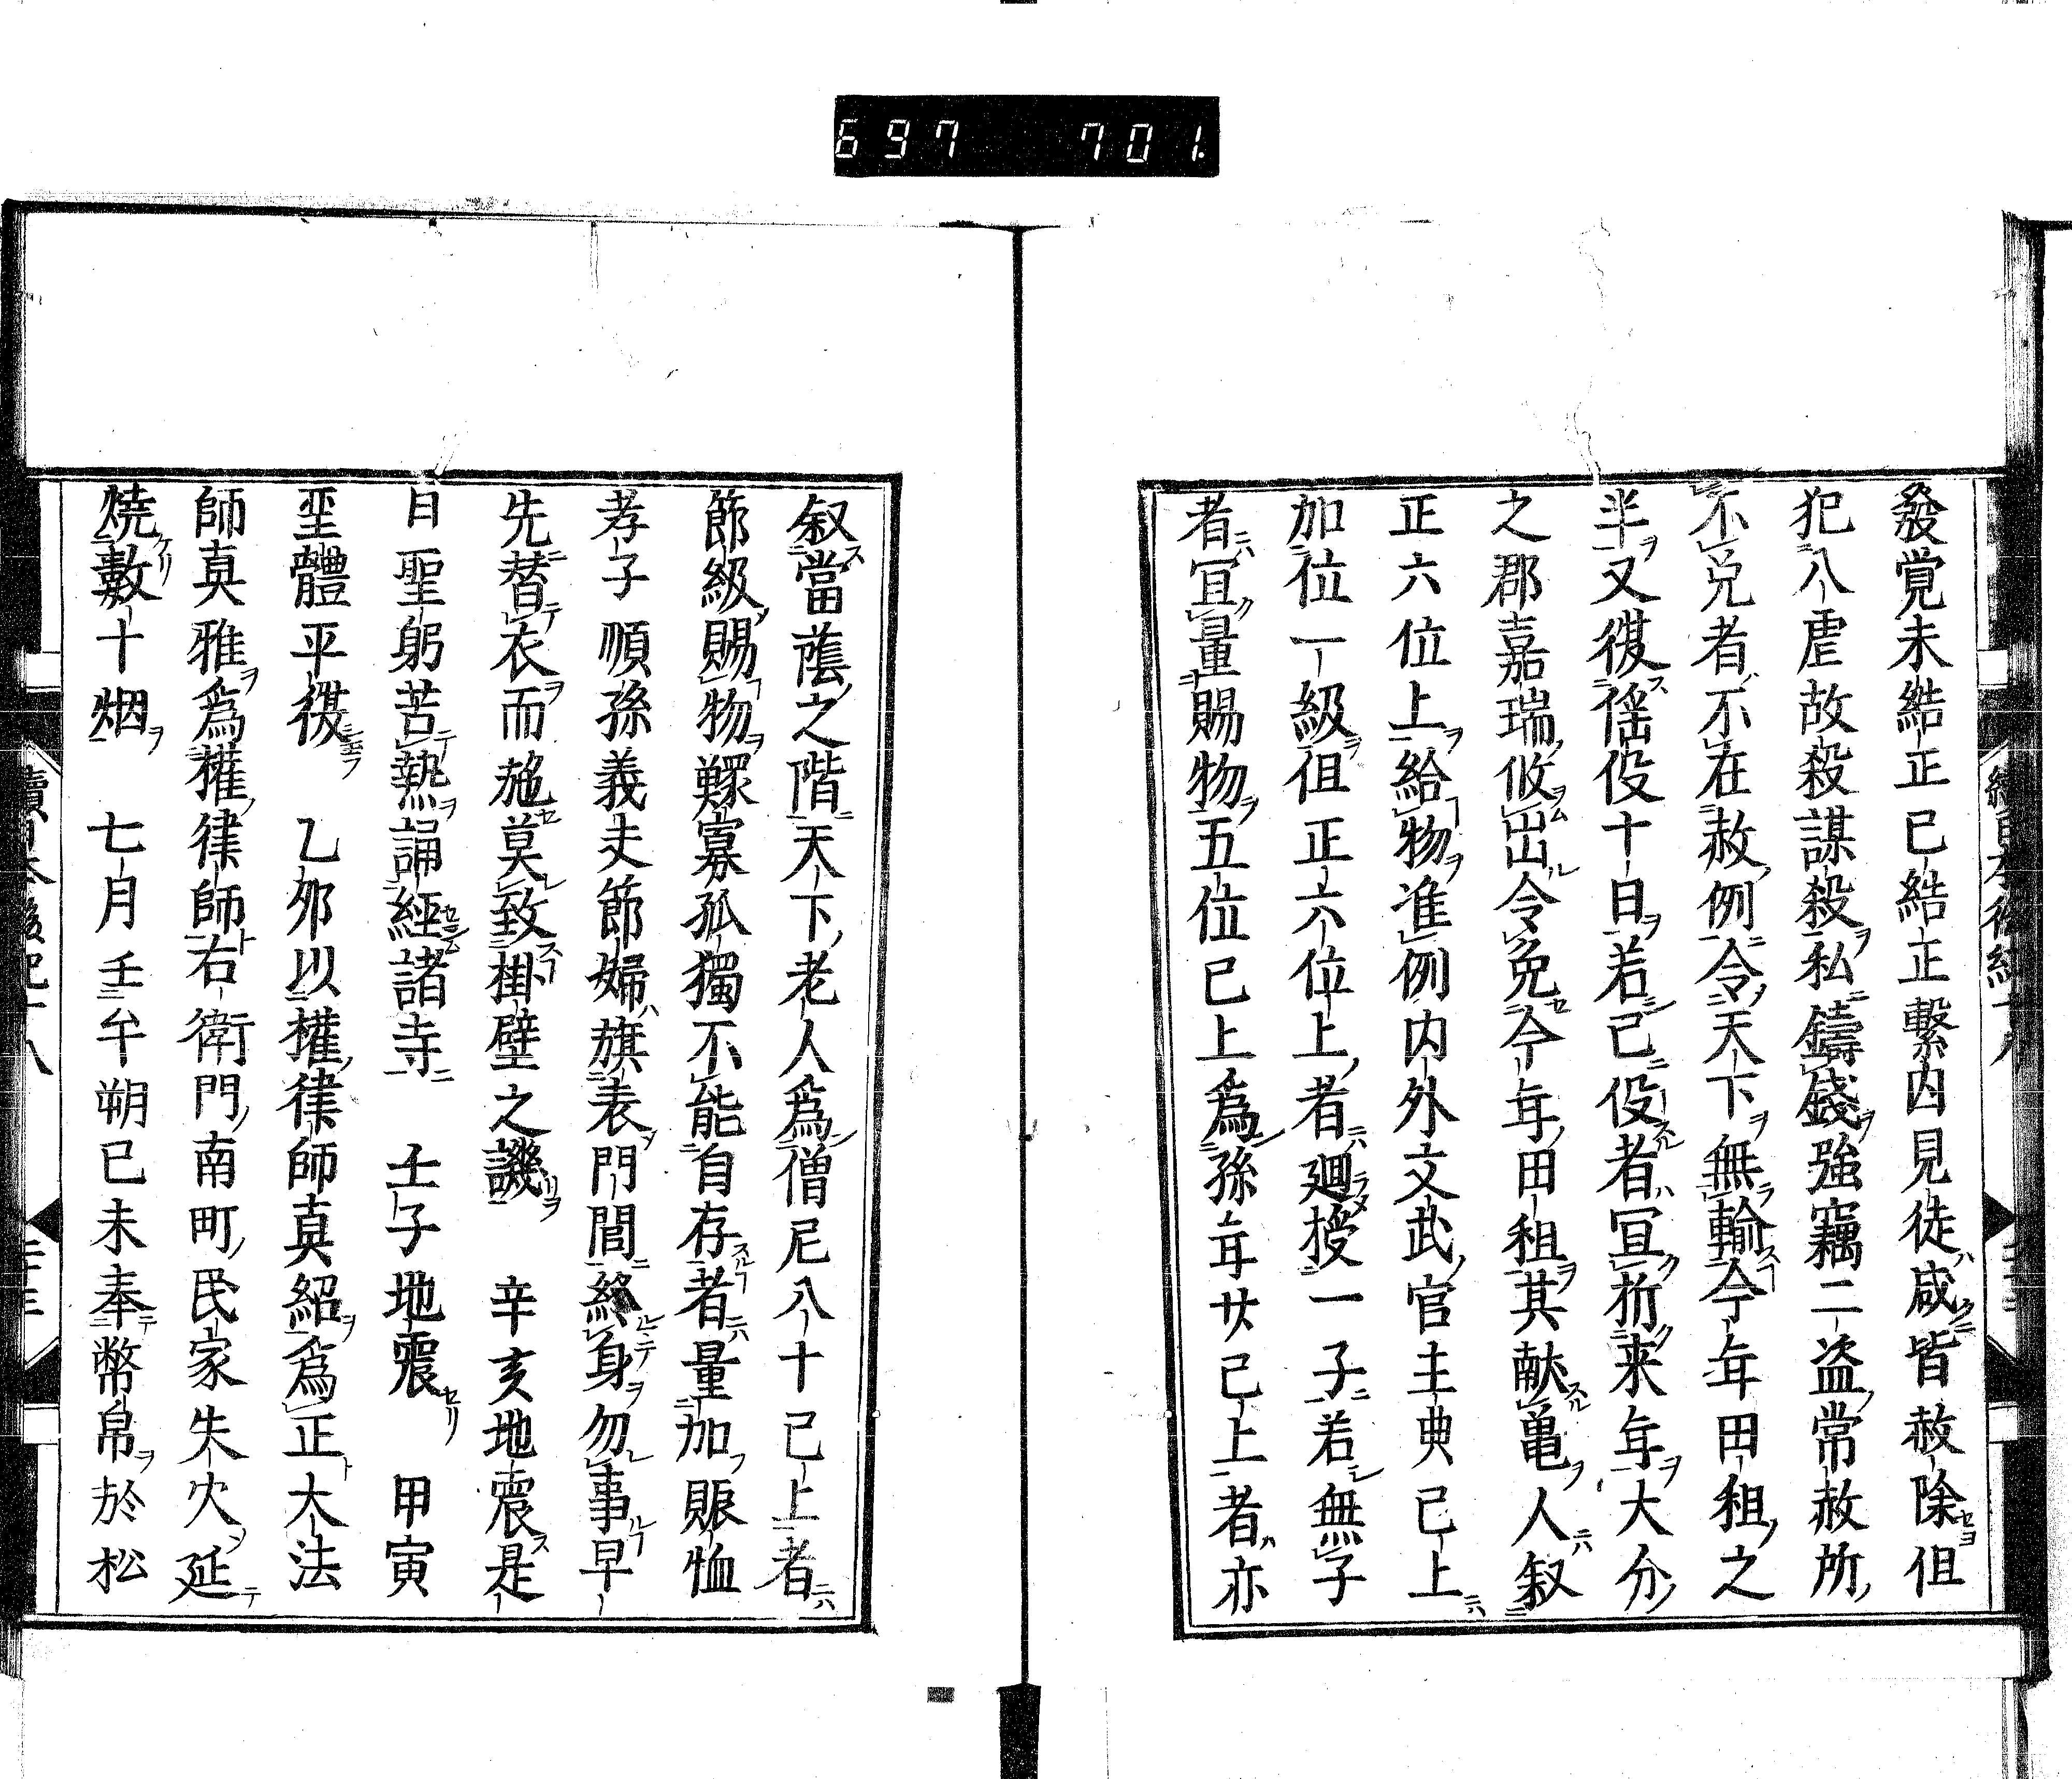 697 701.
發覚未結正已結正繋囚見徒咸皆赦除但
犯八虐故殺謀殺私鑄錢強竊二盗常赦所
不免者不在赦例令天下無輸今年田租之
半又復徭役十日若已役者宜折来年大分
之郡嘉瑞攸出令免今年田租其献亀人叙
正六位上給物准例内外文武官主典已上
加位一級但正六位上者廻授一子若無子
者宜量賜物五位已上為孫年廿已上者亦
叙當蔭之階天下老人為僧尼八十已上者
節級賜物鰥寡孤獨不能自存者量加賑恤
孝子順孫義夫節婦旗表門閭終身勿事早
先替衣而施莫致掛壁之譏 辛亥地震是
日聖躬苦熱誦經諸寺 壬子地震 甲寅
聖體平復 乙夘以權律師真紹為正大法
師真雅為權律師右衛門南町民家失火延
燒數十烟 七月壬午朔己未奉幣帛於松